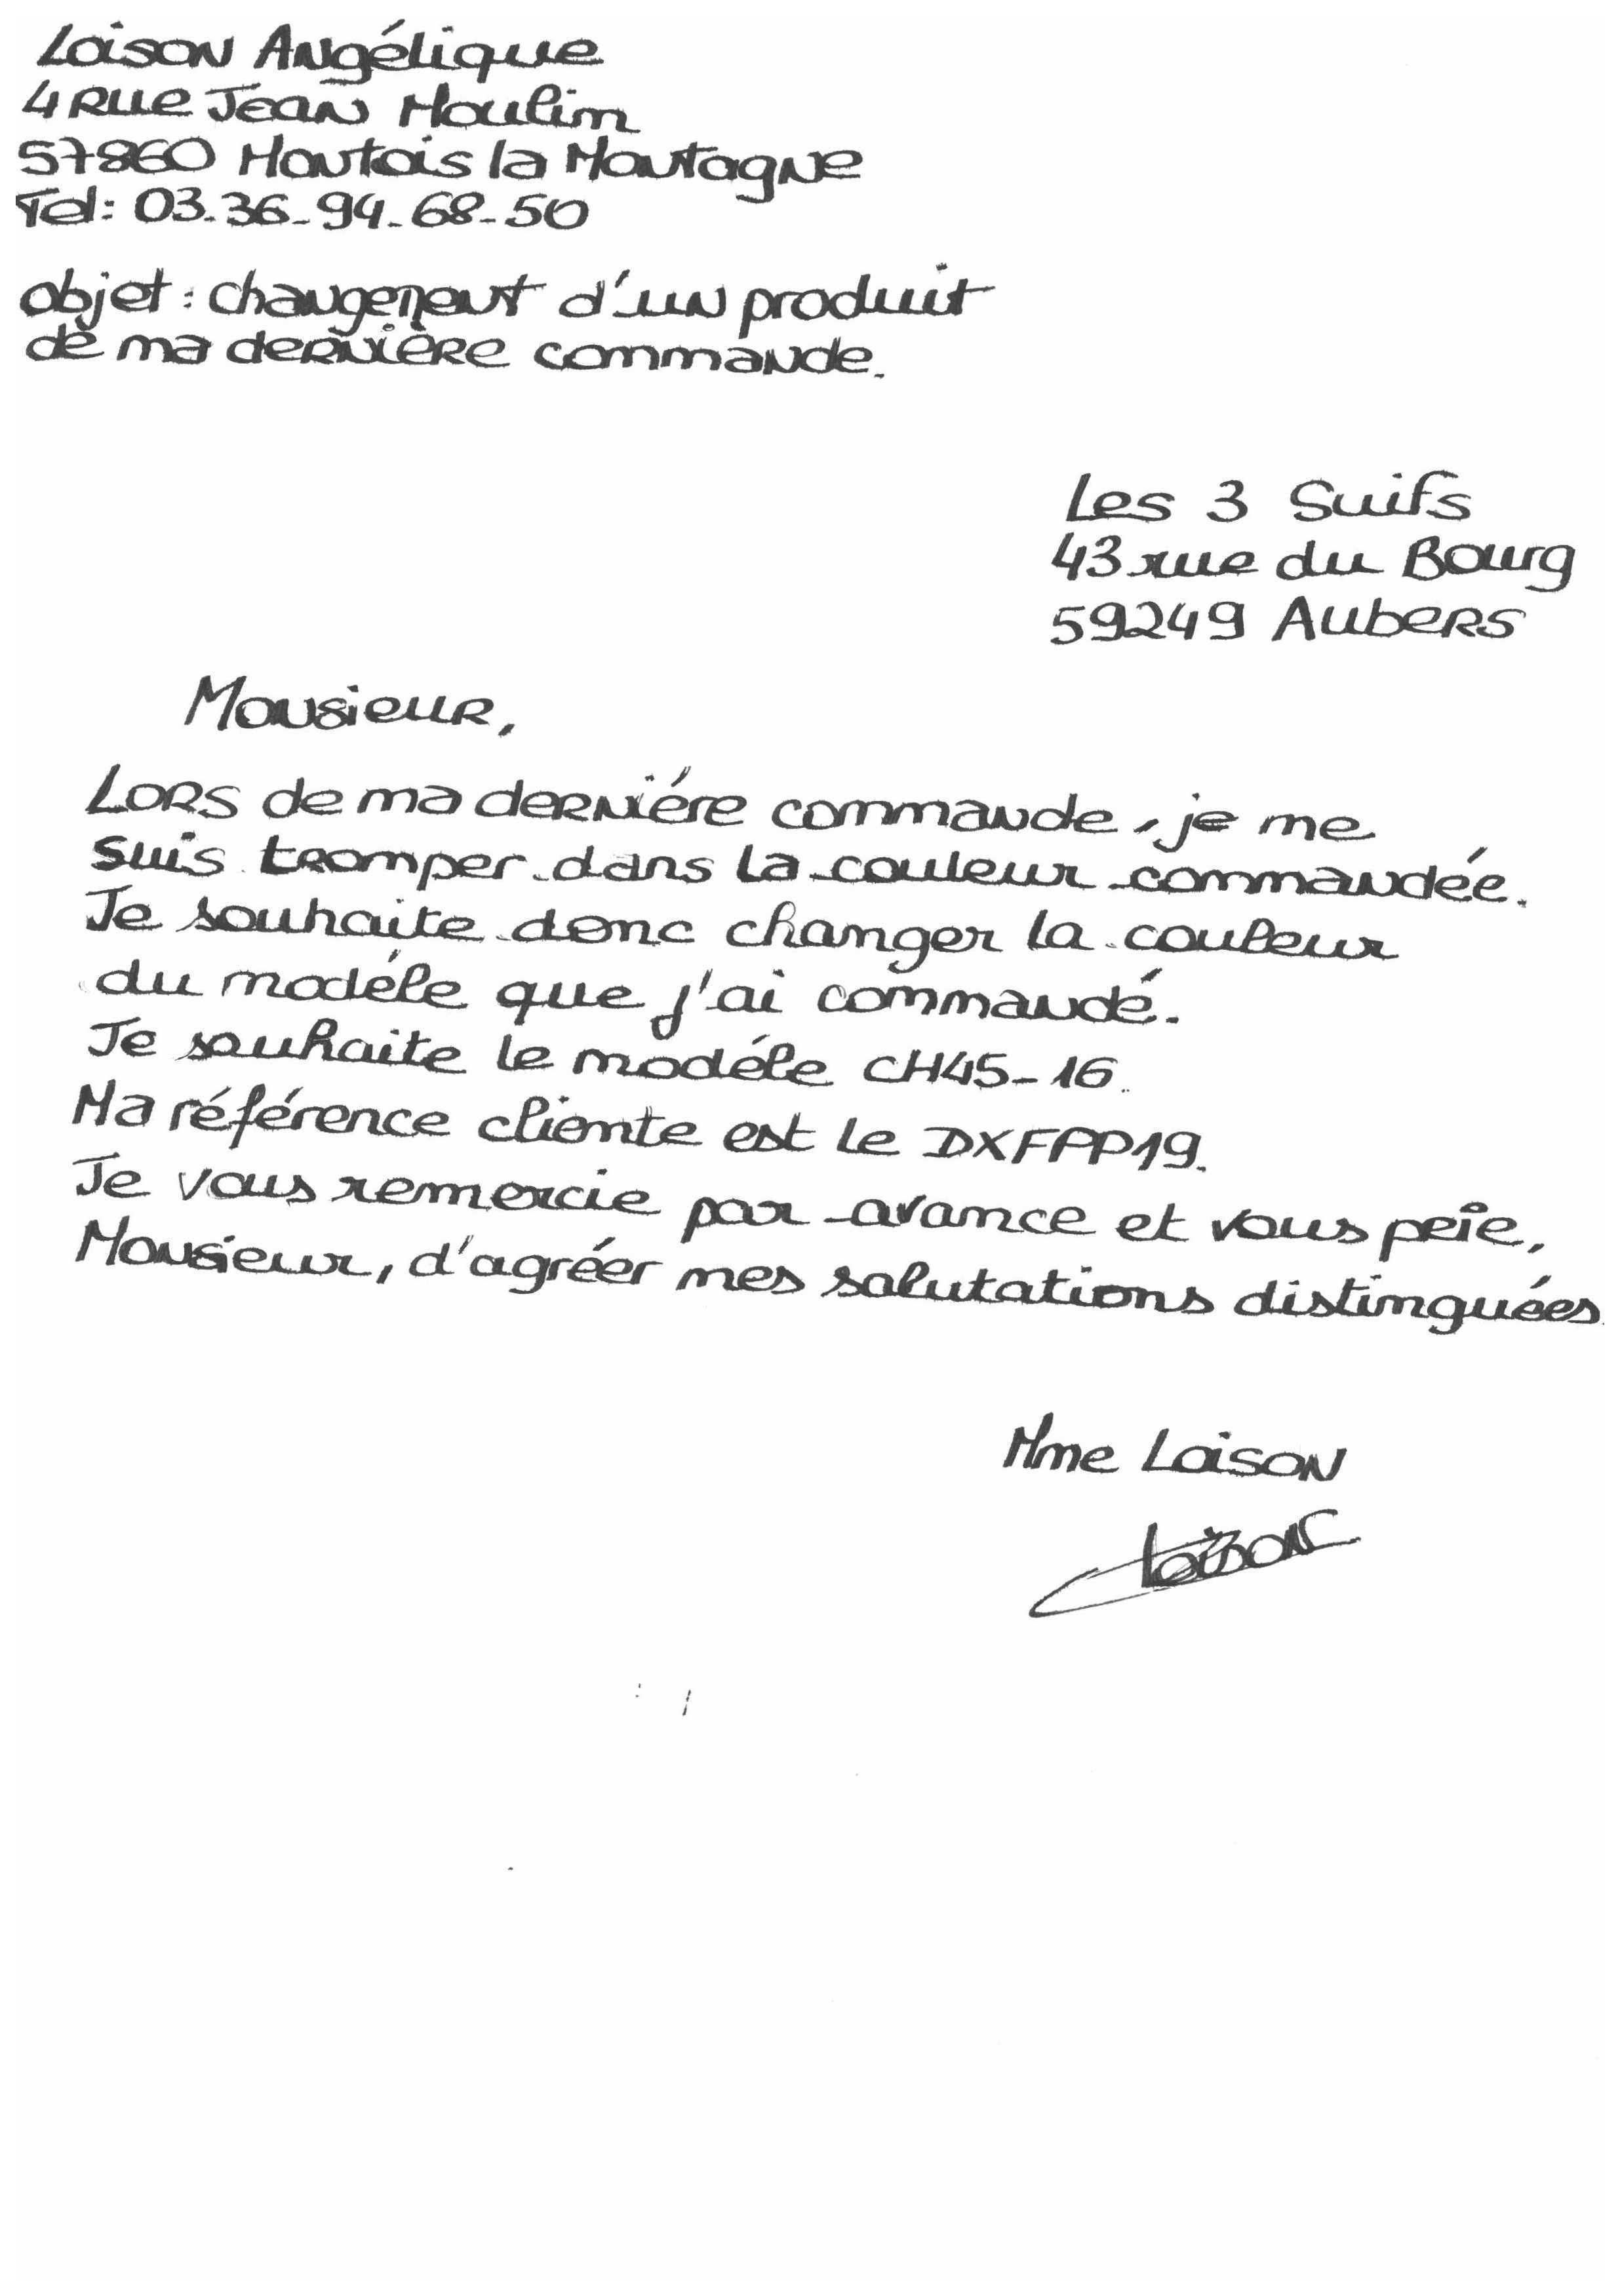 Loison Angélique
4 Rue Jean Moulin
57860 Montois la Montagne
Tel: 03.36.94.68.50
objet: changement d'un produit
de ma dernière commande.
Les 3 Suifs
43 rue du Bourg
59249 Aubers
Monsieur,
Lors de ma derniére commande, je me
suis tromper dans la couleur commandée.
Je souhaite donc changer la couleur
du modéle que j'ai commandé.
Je souhaite le modéle CH45-16.
Ma référence cliente est le DXFPP19.
Je vous remercie par avance et vous peie,
Monsieur, d'agréer mes salutations distinguées.
Mme Loison
Loison